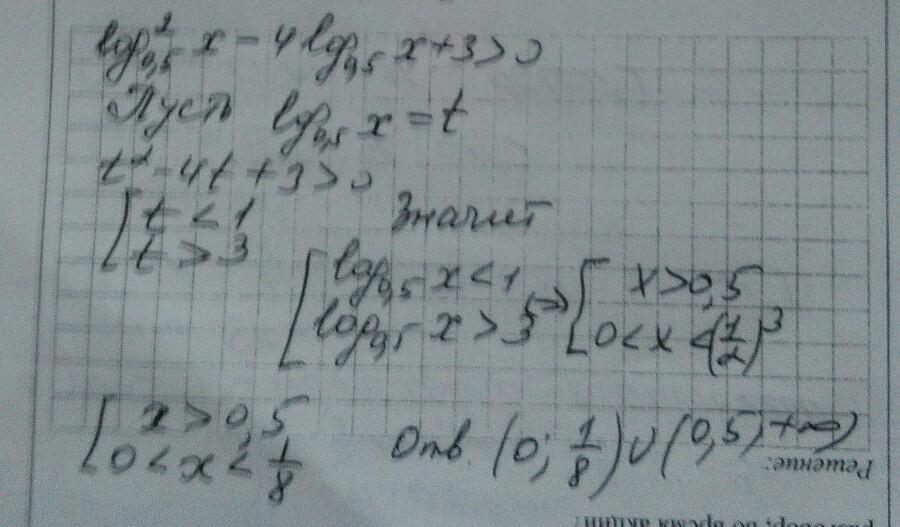 log²₀,₅ x - 4 log₀,₅ x + 3 > 0
Пусть log₀,₅ x = t
t² - 4t + 3 > 0
[ t < 1
t > 3
Значит
[ log₀,₅ x < 1
log₀,₅ x > 3
⇒ [ x > 0,5
0 < x < (1/2)³
[ x > 0,5
0 < x < 1/8
Отв. (0; 1/8) ∪ (0,5; +∞)
Решение:
во время акции?